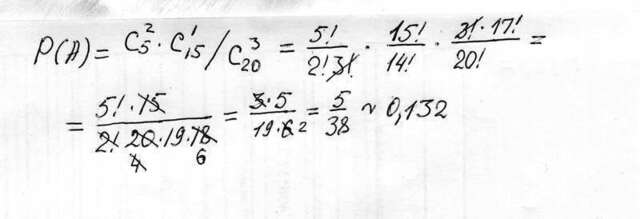 P(A) = C₅² · C₁₅¹ / C₂₀³ = 5!/(2! 3!) · 15!/14! · (3! · 17!)/20! =
= (5! · 15)/(2! 20 · 19 · 18) 4 6 = (3 · 5)/(19 · 6 2) = 5/38 ~ 0,132